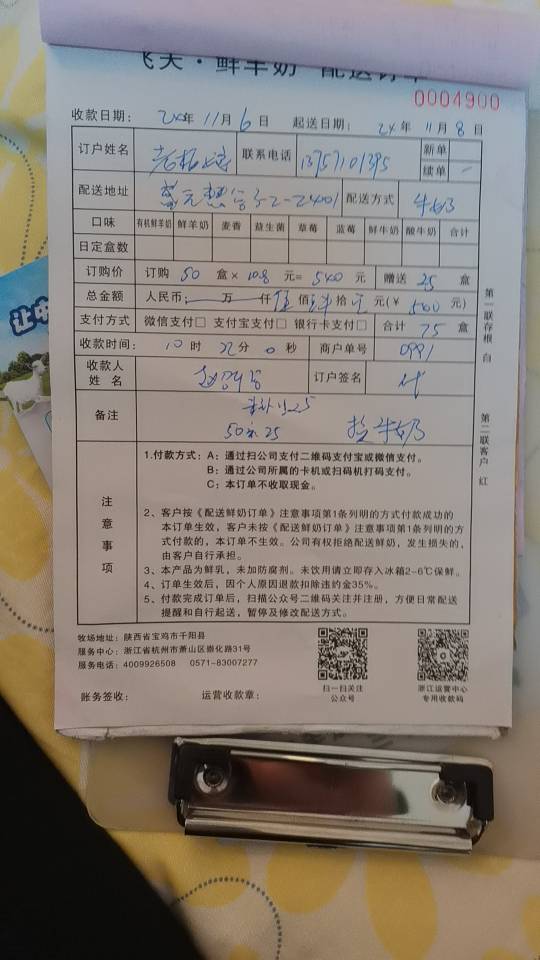 飞天·鲜羊奶 配送订单
0004900
收款日期: 24年 11月 6日 起送日期: 24年 11月 8日
订户姓名 联系电话 13757101395 新单 续单
配送地址 2-2401 配送方式 牛奶
口味 有机鲜羊奶 鲜羊奶 麦香 益生菌 草莓 蓝莓 鲜牛奶 酸牛奶 合计
日定盒数
订购价 订购 50 盒× 10.8 元= 540 元 赠送 25 盒
总金额 人民币: 万 仟 伍 佰 肆 拾 元(¥ 540 元)
支付方式 微信支付□ 支付宝支付□ 银行卡支付□ 合计 75 盒
收款时间: 10时 分 0秒 商户单号 0991
收款人姓名 订户签名 代
备注 25
50送25 牛奶
注意事项
1.付款方式: A: 通过扫公司支付二维码支付宝或微信支付。
B: 通过公司所属的卡机或扫码机打码支付。
C: 本订单不收取现金。
2、客户按《配送鲜奶订单》注意事项第1条列明的方式付款成功的
本订单生效，客户未按《配送鲜奶订单》注意事项第1条列明的方
式付款的，本订单不生效。公司有权拒绝配送鲜奶，发生损失的，
由客户自行承担。
3、本产品为鲜乳，未加防腐剂。未饮用请立即存入冰箱2~6℃保鲜。
4、订单生效后，因个人原因退款扣除违约金35%。
5、付款完成订单后，扫描公众号二维码关注并注册，方便日常配送
提醒和自行起送，暂停及修改配送方式。
第一联存根 白
第二联客户 红
牧场地址: 陕西省宝鸡市千阳县
服务中心: 浙江省杭州市萧山区崇化路31号
服务电话: 4009926508 0571-83007277
扫一扫关注
公众号
浙江运营中心
专用收款码
账务签收: 运营收款章:
让中